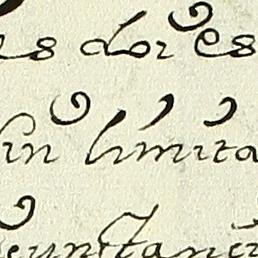 es dores
sin limita
cunstanci